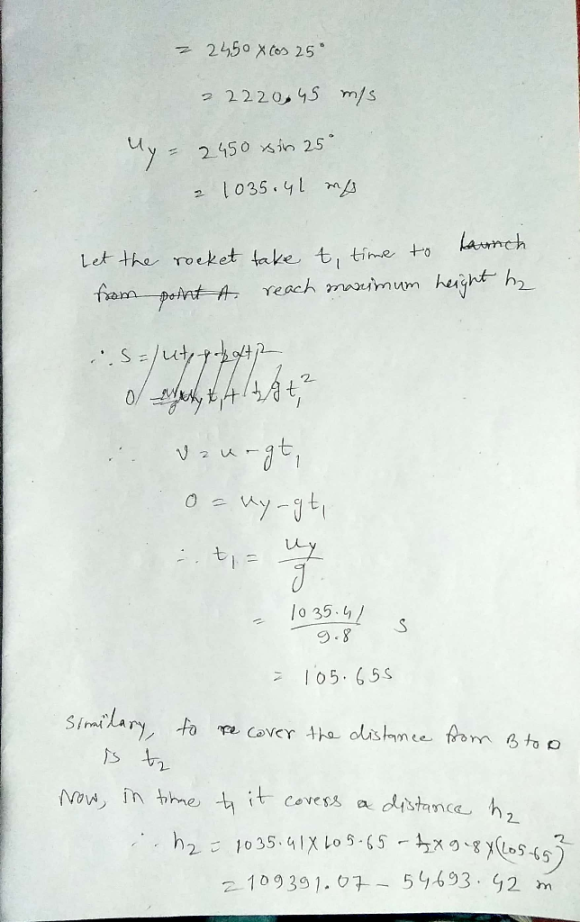 = 2450 × cos 25°
= 2220.45 m/s
uy = 2450 × sin 25°
= 1035.41 m/s
Let the rocket take t₁ time to launch
from point A. reach maximum height h₂
∴ S = ut₁ + ½gt₁²
0 = uy t₁ + ½gt₁²
∴ v = u - gt₁
0 = uy - gt₁
∴ t₁ = uy/g
= 1035.41/9.8 s
= 105.65s
Similary, to cover the distance from B to D
is t₂
Now, in time t₁ it covers a distance h₂
∴ h₂ = 1035.41 × 105.65 - ½ × 9.8 × (105.65)²
= 109391.07 - 54693.42 m